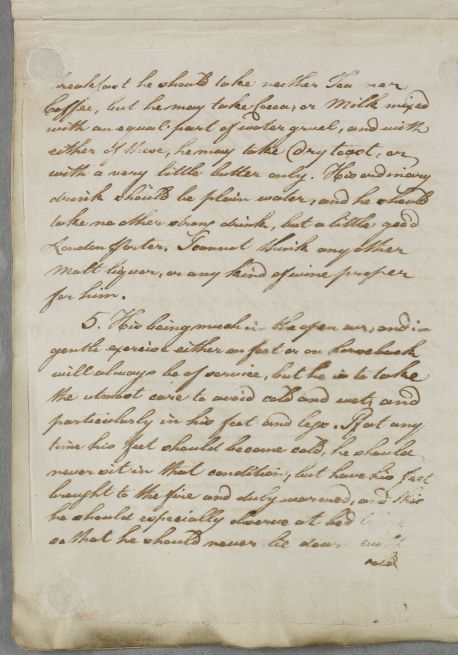 breakfast he should take neither Tea nor
Coffee, but he may take Cocoa, or Milk mixed
with an equal part of water gruel, and with
either of these, he may take Dry toast, or
with a very little butter only. His ordinary
drink should be plain water, and he should
take no other strong drink, but a little good
London Porter. I cannot think any other
Malt liquor, or any kind of wine proper
for him.
5. His being much in the open air, and in
gentle exercise either on foot or on horseback
will always be of service, but he is to take
the utmost care to avoid cold and wet, and
particularly in his feet and legs. If at any
time his feet should become cold, he should
never sit in that condition, but have his feet
brought to the fire and duly warmed, and this
he should especially observe at bed time
so that he should never lie down with
cold